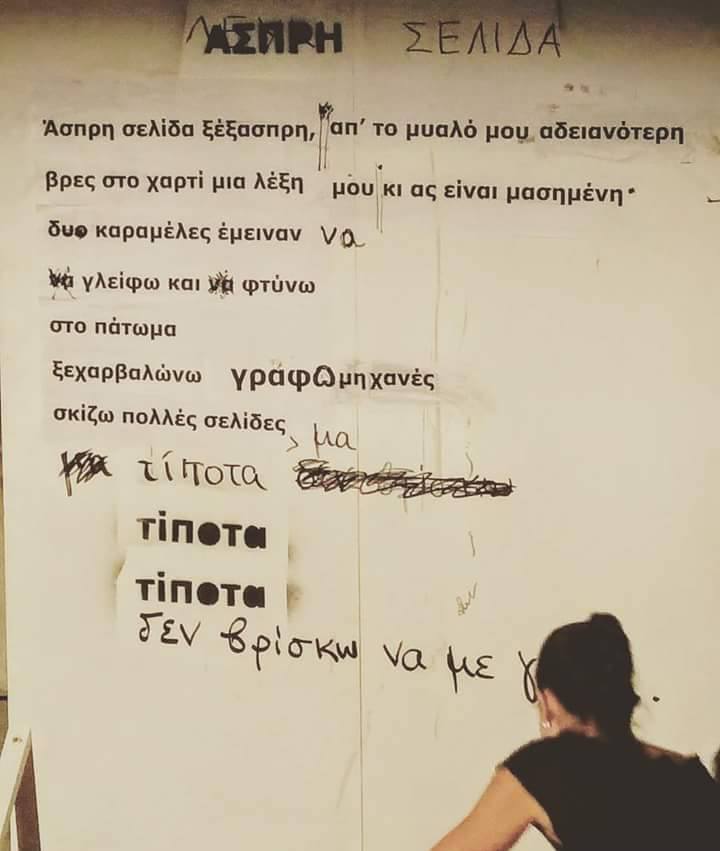 ΑΣΠΡΗ ΣΕΛΙΔΑ
Άσπρη σελίδα ξέξασπρη, απ' το μυαλό μου αδειανότερη
βρες στο χαρτί μια λέξη μου κι ας είναι μασημένη.
δυο καραμέλες έμειναν να
γλείφω και φτύνω
στο πάτωμα
ξεχαρβαλώνω γράφομηχανές
σκίζω πολλές σελίδες, μα
τίποτα
τίποτα
τίποτα
δεν βρίσκω να με